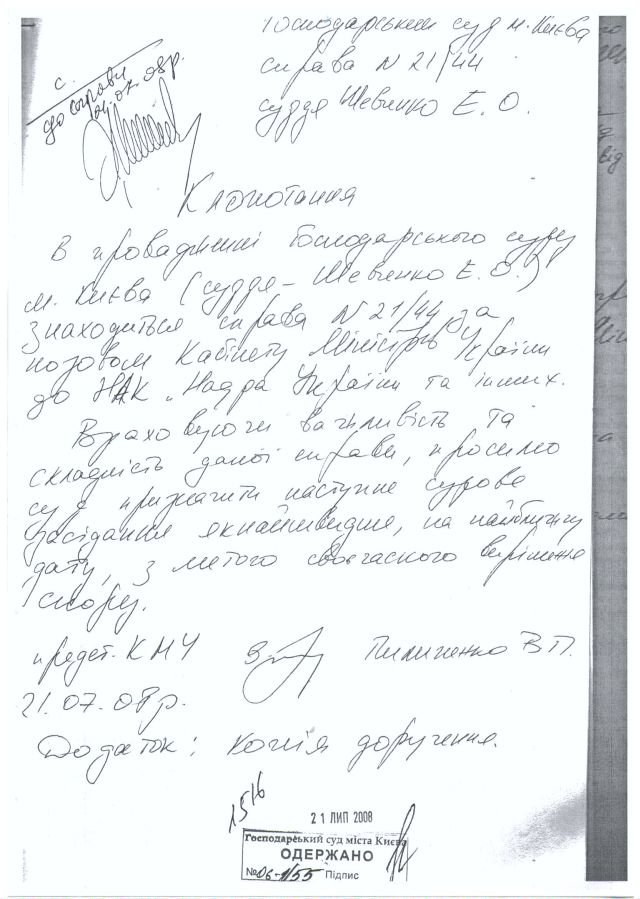 Господарський суд м. Києва
справа N 21/44
суддя Шевченко Е.О.
с.
до справи
Клопотання
В провадженні Господарського суду
м. Києва (суддя - Шевченко Е.О.)
знаходиться справа N 21/44 за
позовом Кабінету Міністрів України
до НАК "Надра України та інших.
Враховуючи важливість та
складність даної справи, просимо
суд призначити наступне судове
засідання якнайшвидше, на найближчу
дату, з метою своєчасного вирішення
спору.
предст. КМУ Пилипенко В.П.
21.07.08р.
Додаток: копія доручення.
15 16
21 ЛИП 2008
Господарський суд міста Києва
ОДЕРЖАНО
№06-1/55 Підпис